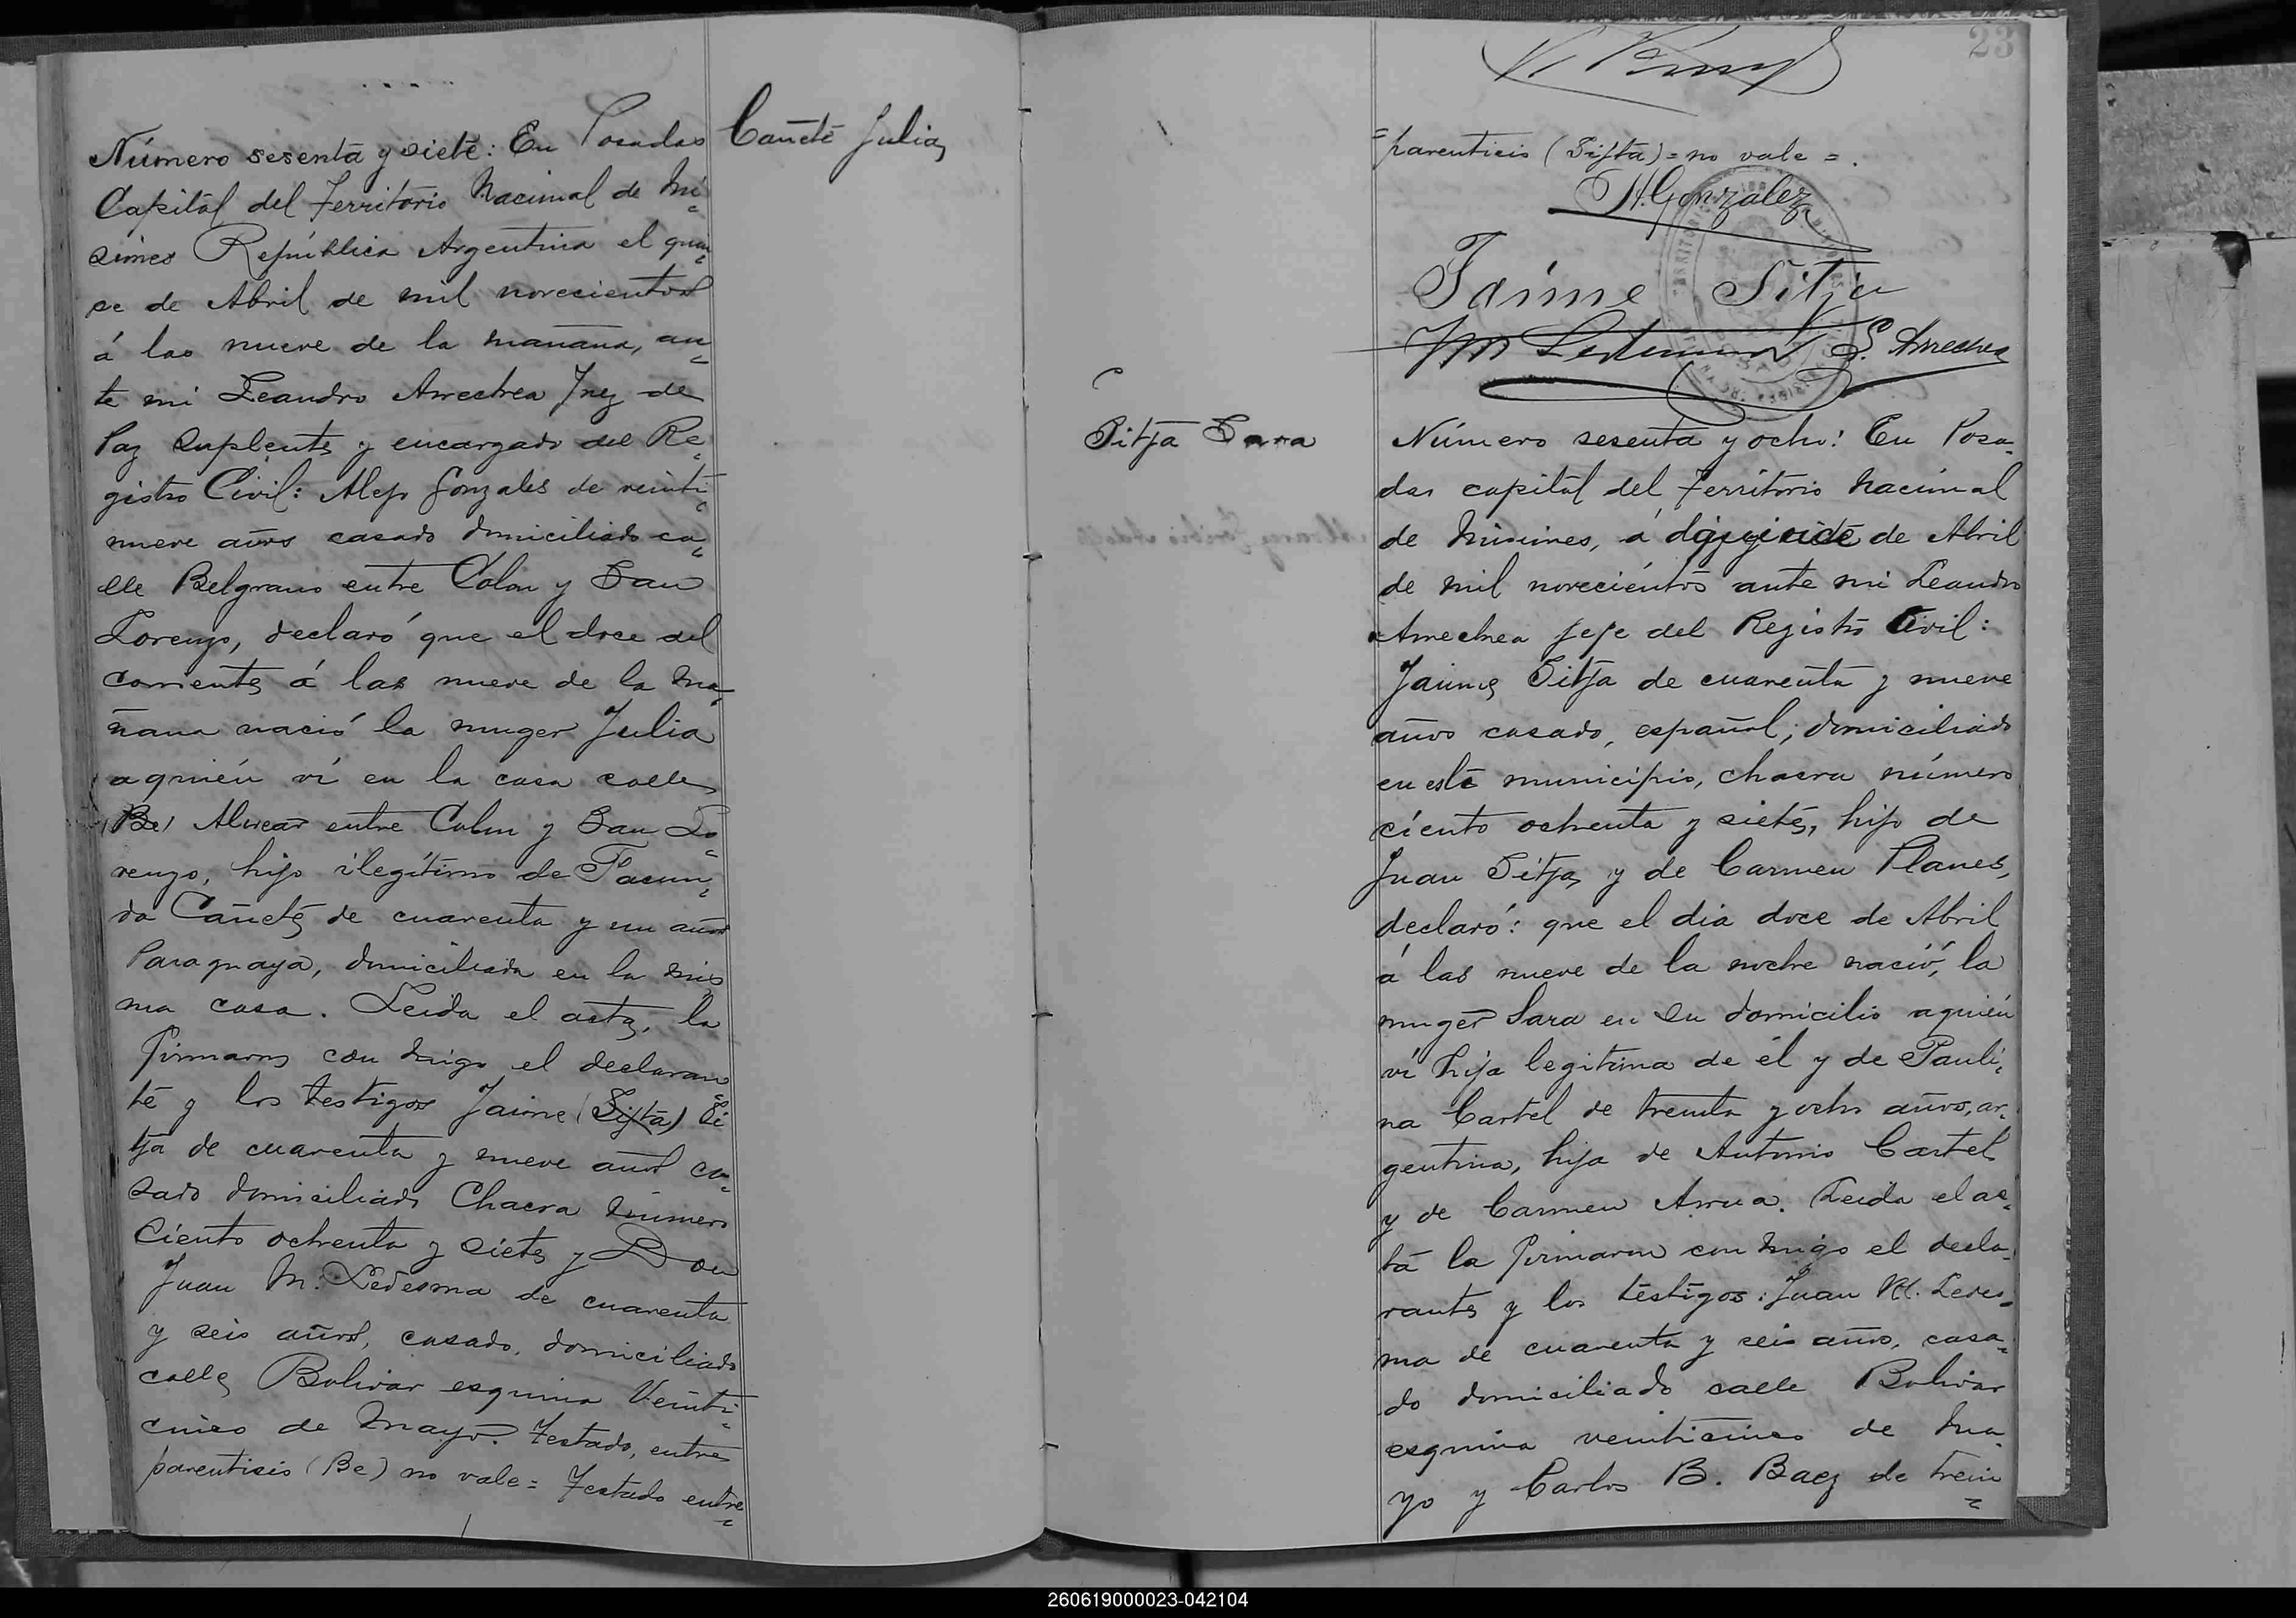 Número sesenta y siete: En Posadas
Capital del Territorio Nacional de Mi=
siones República Argentina el quin=
se de Abril de mil novecientos
á las nueve de la mañana, an=
te mi Leandro Arrechea Juez de
Paz Suplente y encargado del Re=
gistro Civil: Alejo Gonzales de veinti=
nueve años casado domiciliado ca=
lle Belgrano entre Colon y San
Lorenzo, declaró que el doce del
corriente á las nueve de la ma=
ñana nació la muger Julia
aquién ví en la casa calle
(Be) Alvear entre Colon y San Lo=
renzo, hijo ilegítimo de Facun=
da Cañete de cuarenta y un años
Paraguaya, domiciliada en la mis
ma casa. Leida el acta, la
firmaron con migo el declaran
te y los testigos Jaime (Sijta) Si=
tja de cuarenta y nueve años ca=
sado domiciliado Chacra número
Ciento ochenta y siete y Don
Juan M. Ledesma de cuarenta
y seis años, casado, domiciliado
calle Bolivar esquina Veinti=
cinco de Mayo. Testado, entre
parentisis (Be) no vale = Testado entre=
Cañete Julia
23
=parentisis (Sijta) = no vale = .
A. Gonzalez
Jaime Sitja
J M Ledesma L. Arrechea
Sitja Sara
Número sesenta y ocho: En Posa=
das capital del Territorio Nacional
de Misiones, á de Abril
de mil novecientos ante mi Leandro
Arrechea Jefe del Registro Civil:
Jaime Sitja de cuarenta y nueve
años casado, español; domiciliado
en este municipio, chacra número
ciento ochenta y siete, hijo de
Juan Sitja y de Carmen Planes,
declaró: que el dia doce de Abril
á las nueve de la noche nació, la
muger Sara en su domicilio aquién
ví hija legitima de él y de Pauli=
na Cartel de treinta y ocho años, ar=
gentina, hija de Antonio Cartel
y de Carmen Arrua. Leida el ac=
ta la firmaron con migo el decla=
rante y los testigos: Juan M. Ledes=
ma de cuarenta y seis años, casa=
do domiciliado calle Bolivar
esquina veinticinco de Ma
yo y Carlos B. Baez de trein=
260619000023-042104